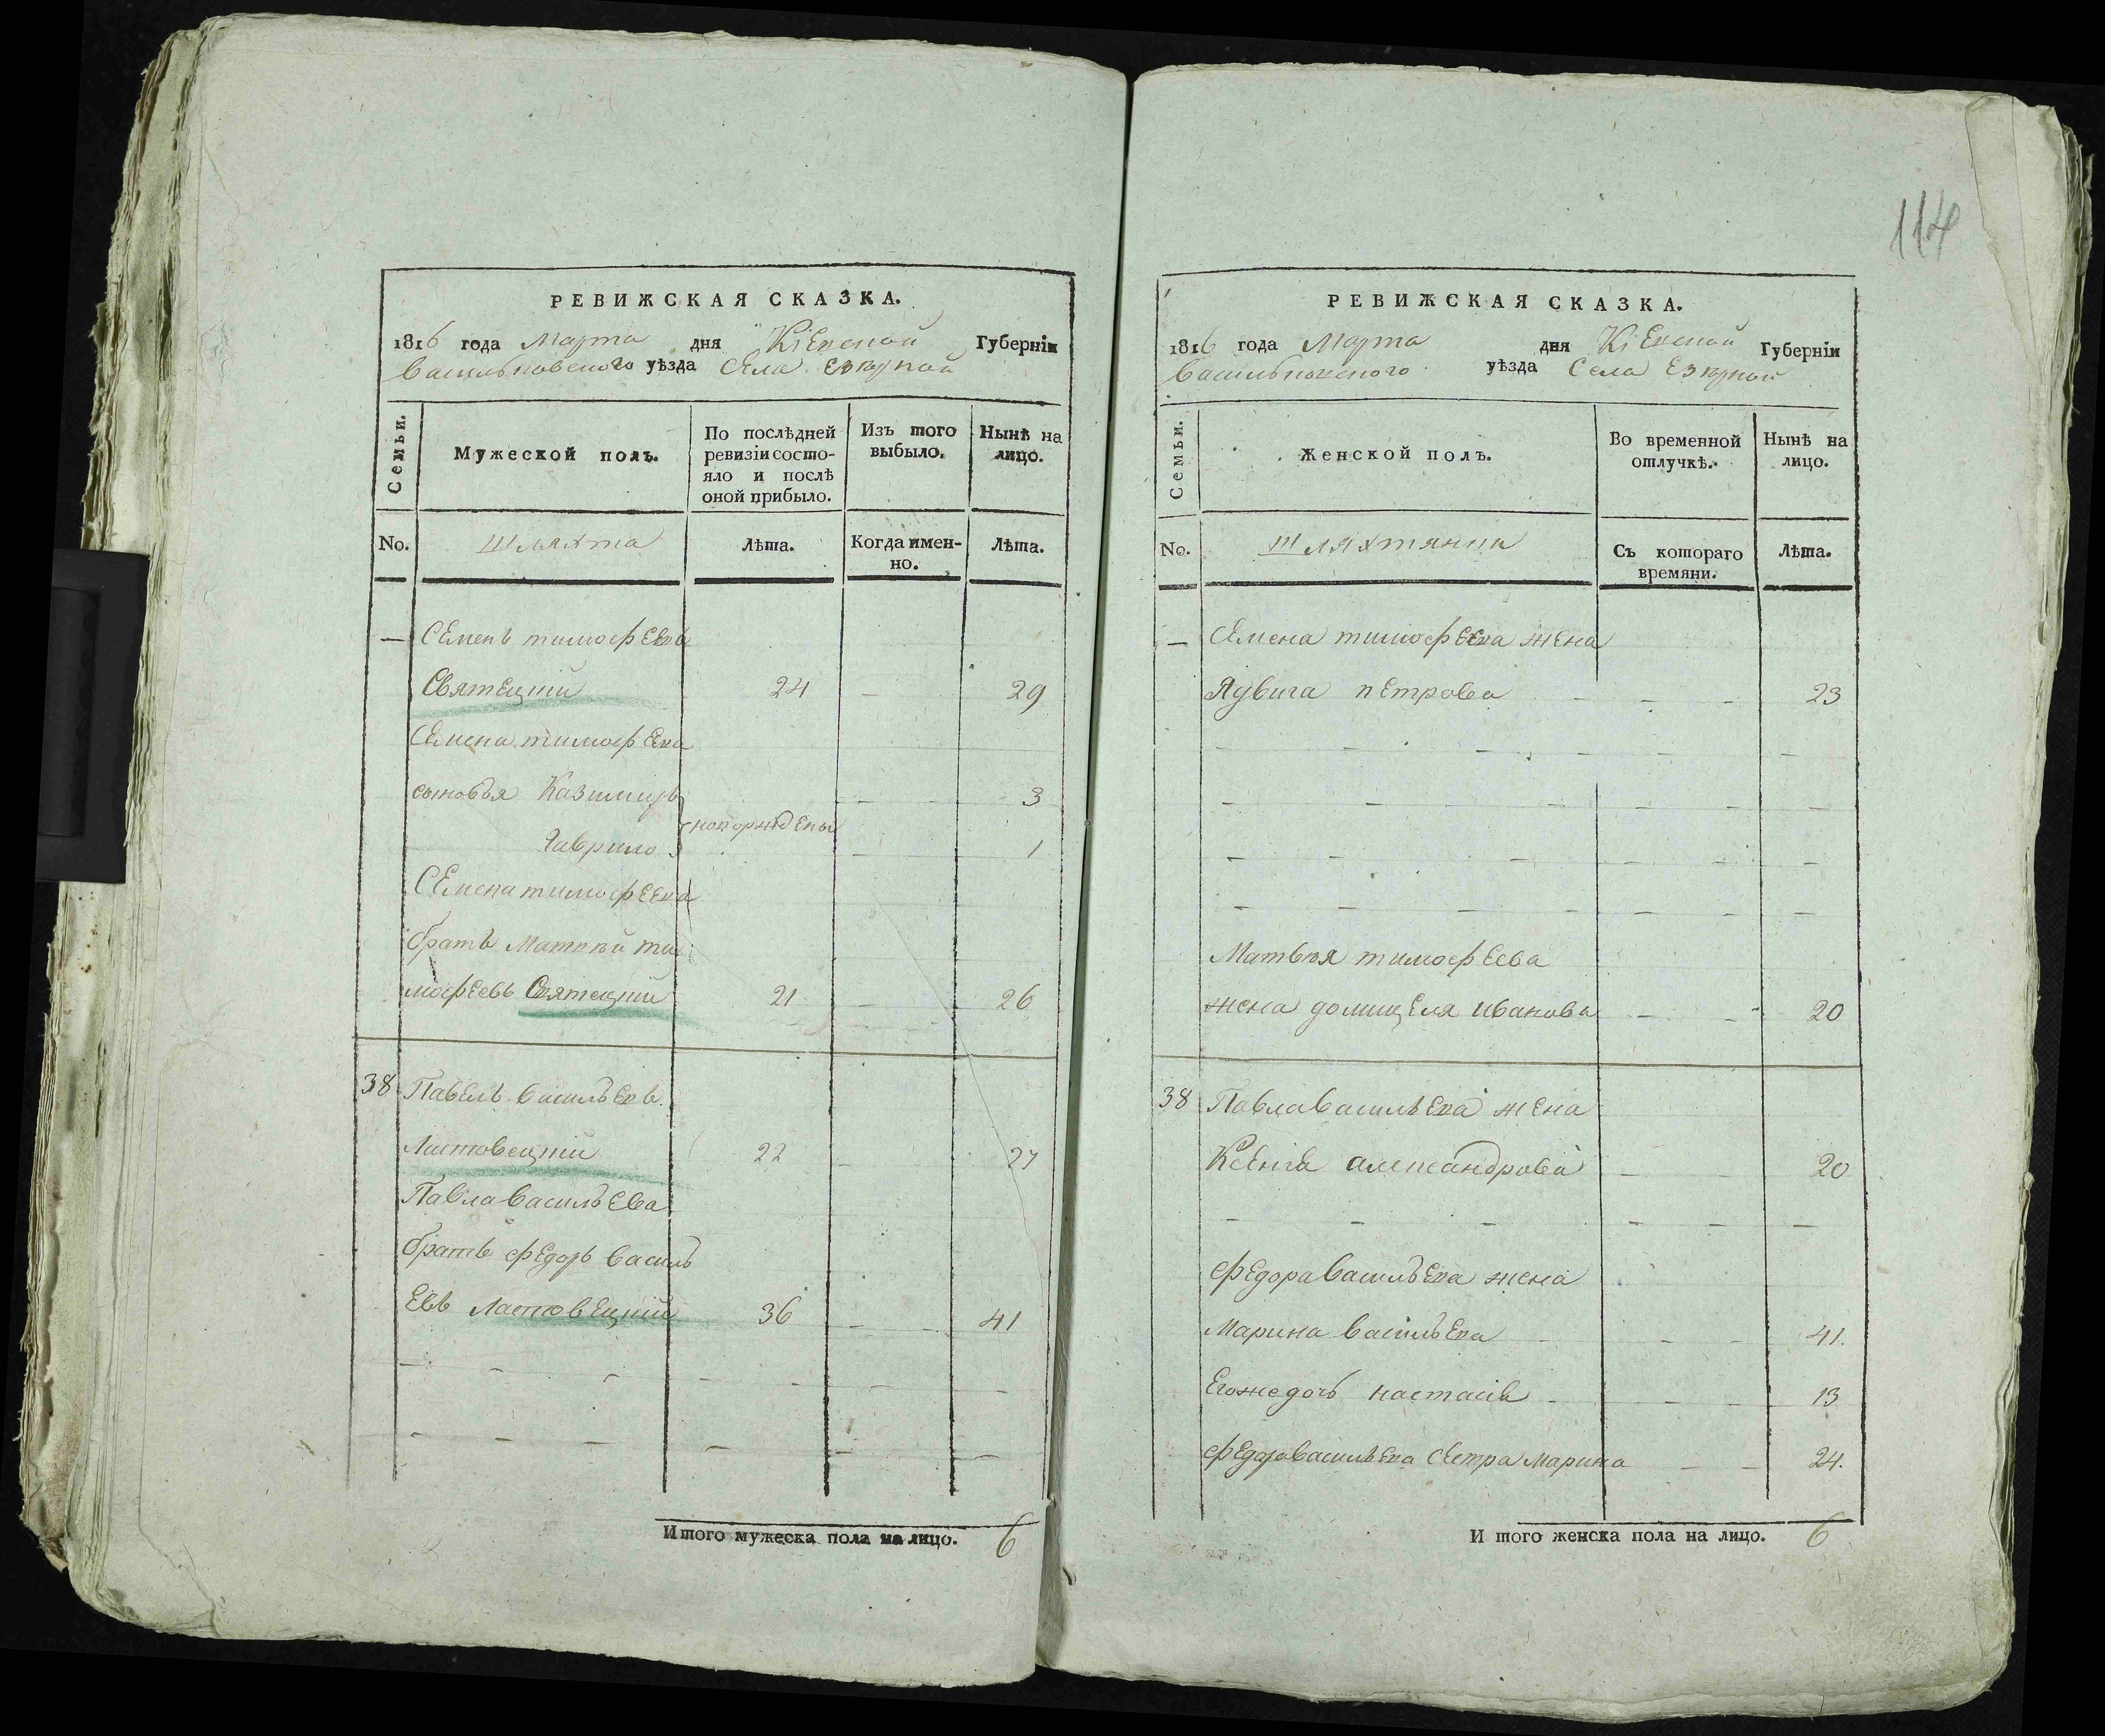 114
РЕВИЖСКАЯ СКАЗКА.
1816 года Марта дня Кіевской Губерніи
Васильковского уѣзда Села Езерной
Семьи.
Мужеской полъ.
По послѣдней ревизіи состояло и послѣ оной прибыло.
Изъ того выбыло.
Нынѣ на лицо.
No.
Шляхта
Лѣта.
Когда именно.
Лѣта.
— Семенъ тимофеевъ
Святецкій 24 — 29
Семена тимофеева
сыновья Казимиръ — — 3
новорожденые
Гаврило — — 1
Семена тимофеева
братъ Матвѣй ти
мофеевъ Святецкий 21 — 26
38 Павелъ васильевъ
Листовецкій 22 — 27
Павла васильева
братъ федоръ василь
евъ Листовецкій 36 — — 41
Итого мужеска пола на лицо. 6
РЕВИЖСКАЯ СКАЗКА.
1816 года Марта дня Кіевской Губерніи
Васильковского уѣзда Села Езерной
Семьи.
Женской полъ.
Во временной отлучкѣ.
Нынѣ на лицо.
No.
Шляхтянки
Съ котораго времяни.
Лѣта.
— Семена тимофеева жена
Ядвига петрова — — — 23
Матвѣя тимофеева
жена домицеля иванова — — 20
38 Павла васильева жена
Ксенія александрова — — 20
федора васильева жена
Марина васильева — — — 41.
Егоже дочь настасія — — — 13
федора васильева сестра марина — — 24.
И того женска пола на лицо. 6